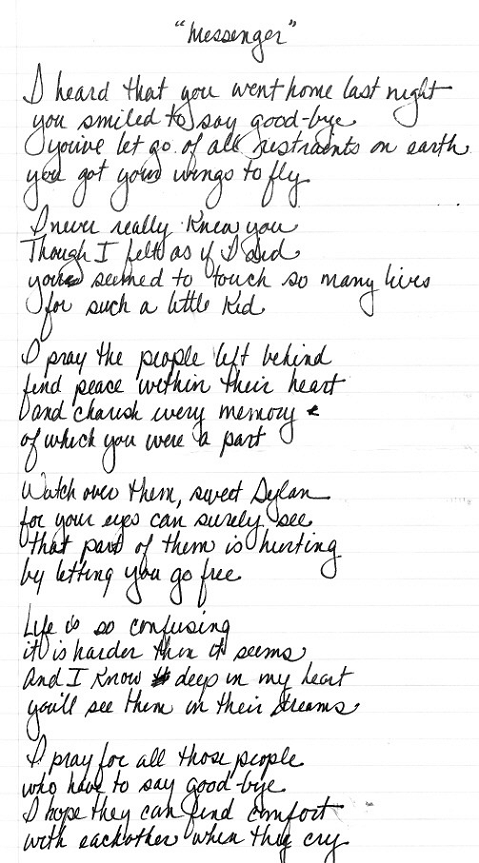 "Messenger"
I heard that you went home last night
you smiled to say good-bye
you've let go of all restraints on earth
you got your wings to fly
I never really knew you
Though I felt as if I did
you seemed to touch so many lives
for such a little kid
I pray the people left behind
find peace within their heart
and charish every memory
of which you were a part
Watch over them, sweet Dylan
for your eyes can surely see
that part of them is hurting
by letting you go free
Life is so confusing
it is harder then it seems
And I know deep in my heart
you'll see them in their dreams
I pray for all those people
who have to say good-bye
I hope they can find comfort
with eachother when they cry